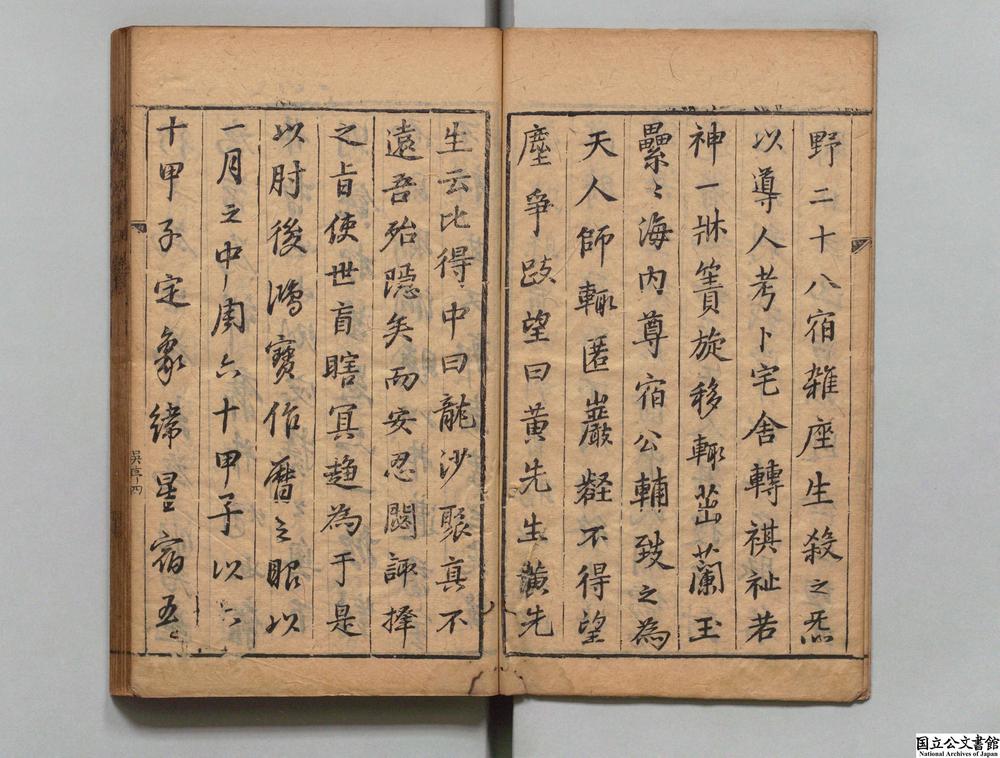 野二十八宿雜座生殺之炁
以導人考卜宅舍轉祺祉若
神一牀簀旋移輙茁蘭玉
纍〻海内尊宿公輔致之為
天人師輙匿巖 不得望
塵爭跂望曰黃先生黃先
生云比得中曰龍沙聚真不
遠吾殆隱矣而安忍閟諏擇
之旨使世盲瞎冥趨為于是
以肘後鴻寶作曆之眼以
一月之中周六十甲子以六
十甲子定象緯星宿五〻
吳直四
国立公文書館
National Archives of Japan